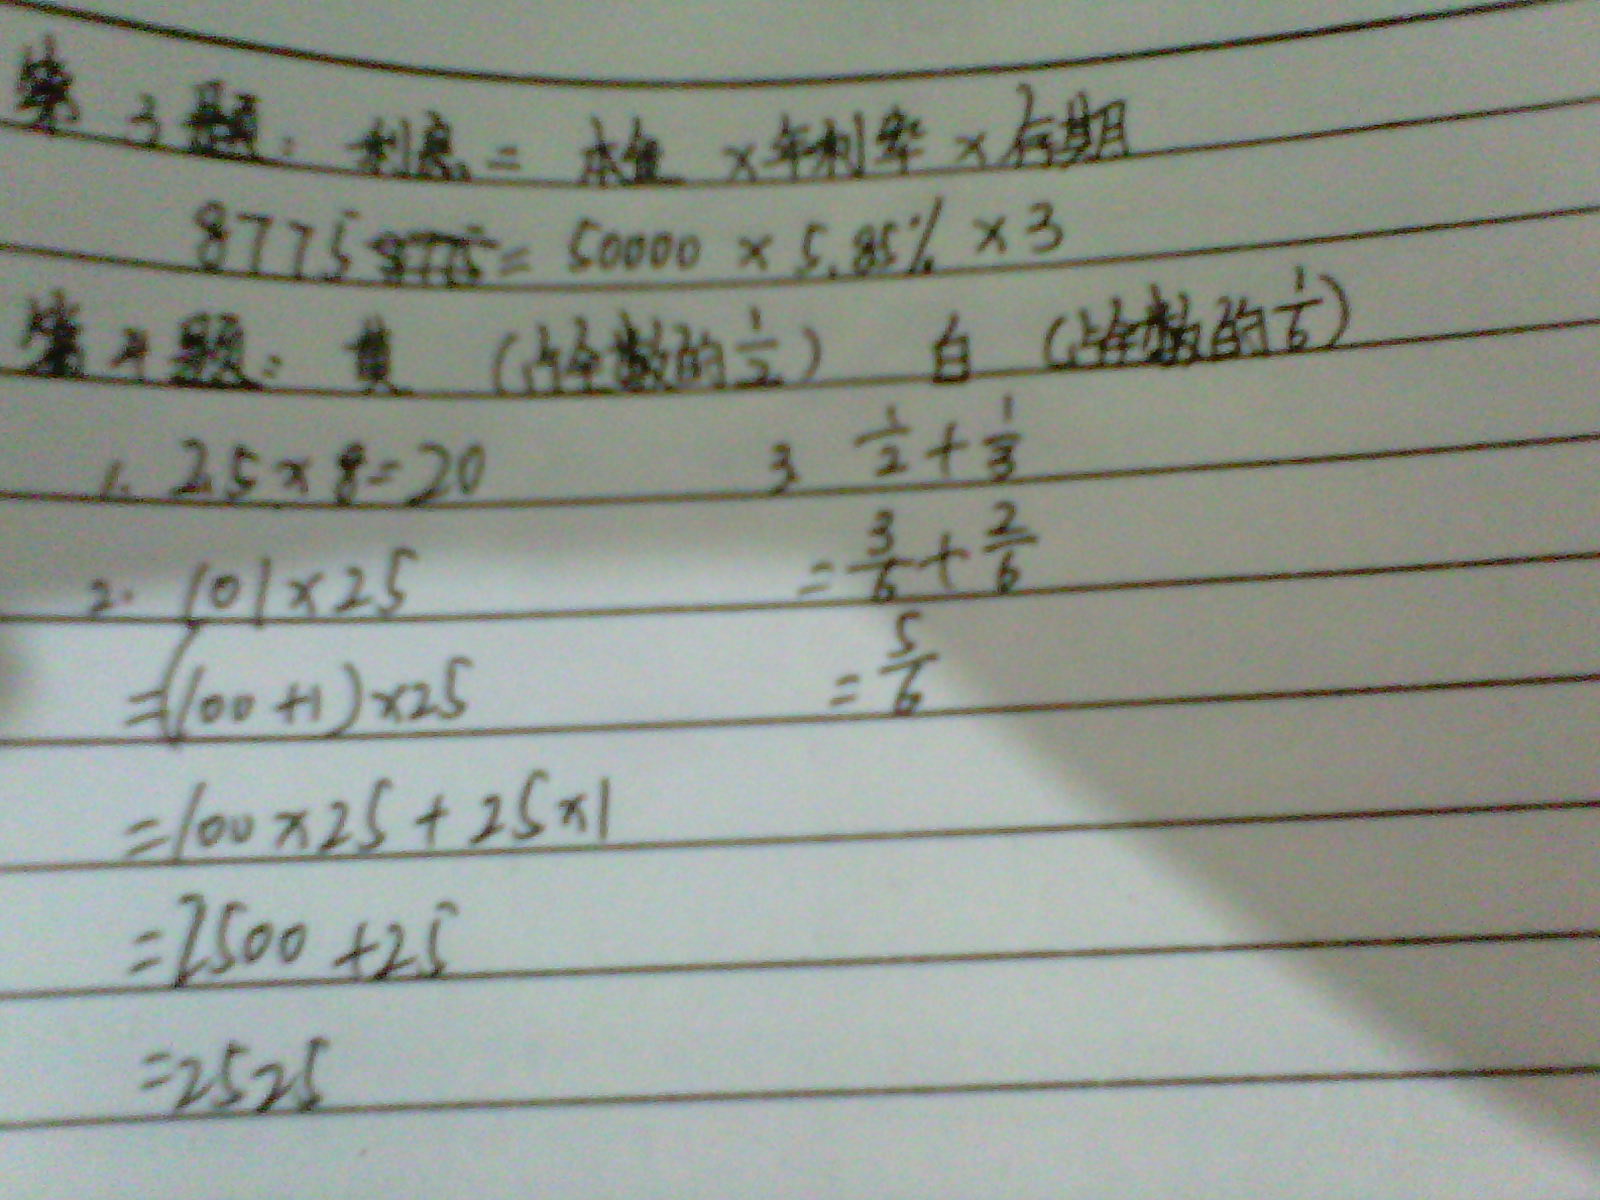 第3题：利息 = 本金 ×年利率 ×存期
8775 = 50000 × 5.85% ×3
第4题： 黄 （占全数的1/2） 白 （占全数的1/6）
1. 2.5×8=20
3. 1/2+1/3
2. 101×25
=3/6+2/6
=(100+1)×25
=5/6
=100×25+25×1
=2500+25
=2525